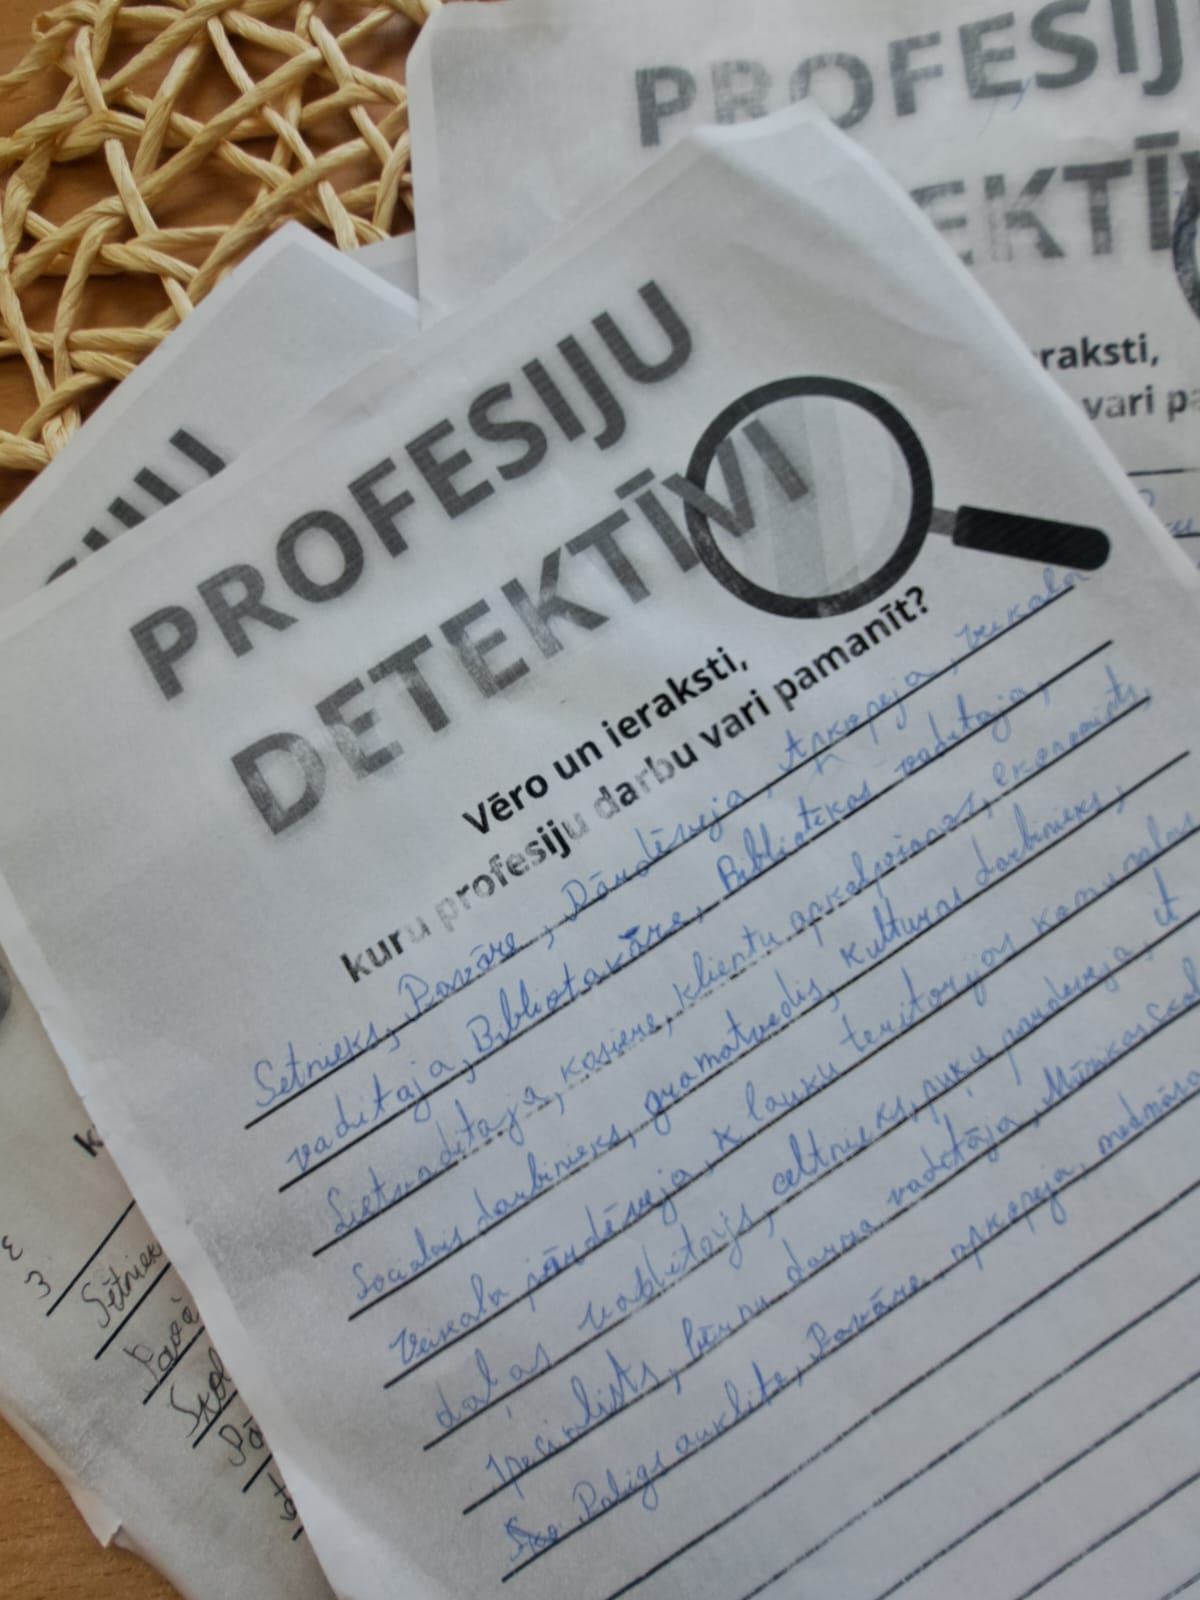 PROFESIJU
DETEKTĪVI
Vēro un ieraksti,
kuru profesiju darbu vari pamanīt?
Sētnieks, Pavāre, Pārdēveja, Apkopeja, veikala
vaditaja, Bibliotakāre, Bibliotēkas vaditaja,
Lietvaditaja, kasiere, klientu apkalpošanas, ekonomists,
Sociālais darbinieks, gramatvedis, kulturas darbinieks,
Veikala pārdēveja, k lauku teritorijas komunalas
daļas vablitājs, celtnieks, puķu pardeveja, it
specialists, bērnu darza vadītāja, Mūzikas
Paligs auklite, Pavāre, apkopeja, medmāsa
PROFESIJ
EKTĪV
raksti,
vari pa
SIJU
Sētniek
Pavā
Skol